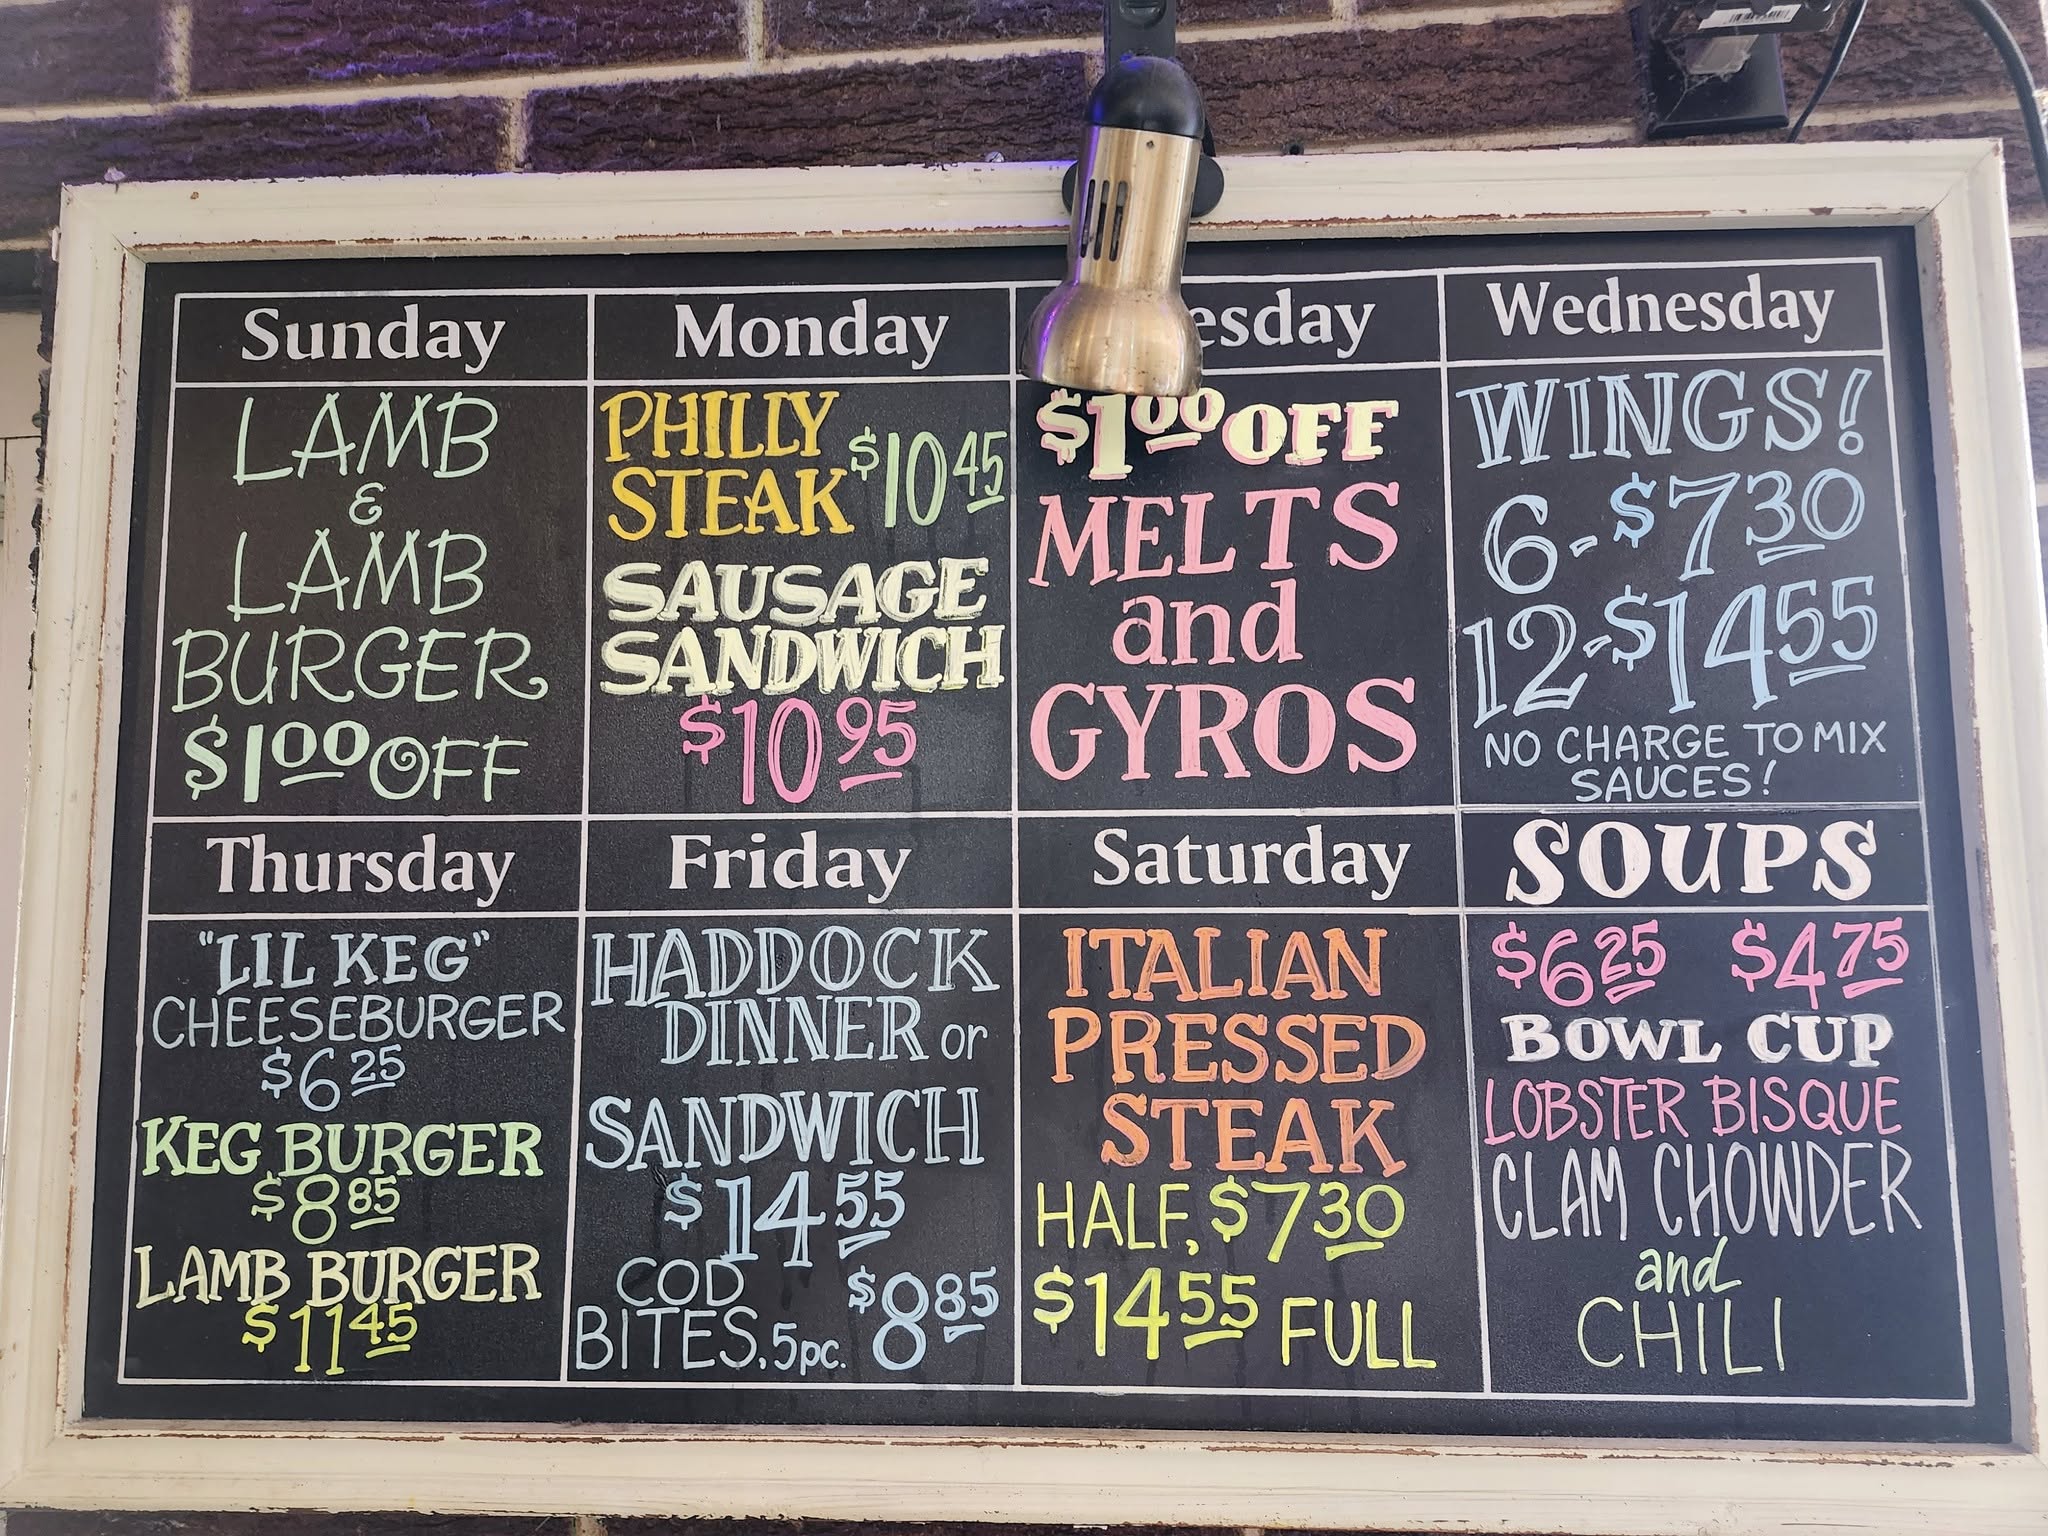 Sunday
LAMB
&
LAMB
BURGER
$1.00 OFF
Monday
PHILLY
STEAK $10.45
SAUSAGE
SANDWICH
$10.95
esday
$1.00 OFF
MELTS
and
GYROS
Wednesday
WINGS!
6-$7.30
12-$14.55
NO CHARGE TO MIX
SAUCES!
Thursday
"LIL KEG"
CHEESEBURGER
$6.25
KEG BURGER
$8.85
LAMB BURGER
$11.45
Friday
HADDOCK
DINNER or
SANDWICH
$14.55
COD
BITES, 5pc. $8.85
Saturday
ITALIAN
PRESSED
STEAK
HALF, $7.30
$14.55 FULL
SOUPS
$6.25 $4.75
BOWL CUP
LOBSTER BISQUE
CLAM CHOWDER
and
CHILI